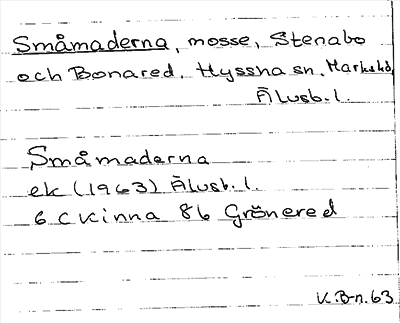 Småmaderna, mosse, Stenabo
och Bonared. Hyssna sn. Marks hd
Älvsb. l.
Småmaderna
ek (1963) Älvsb. l.
6 c kvinna 86 Grönered
K. B-n. 63